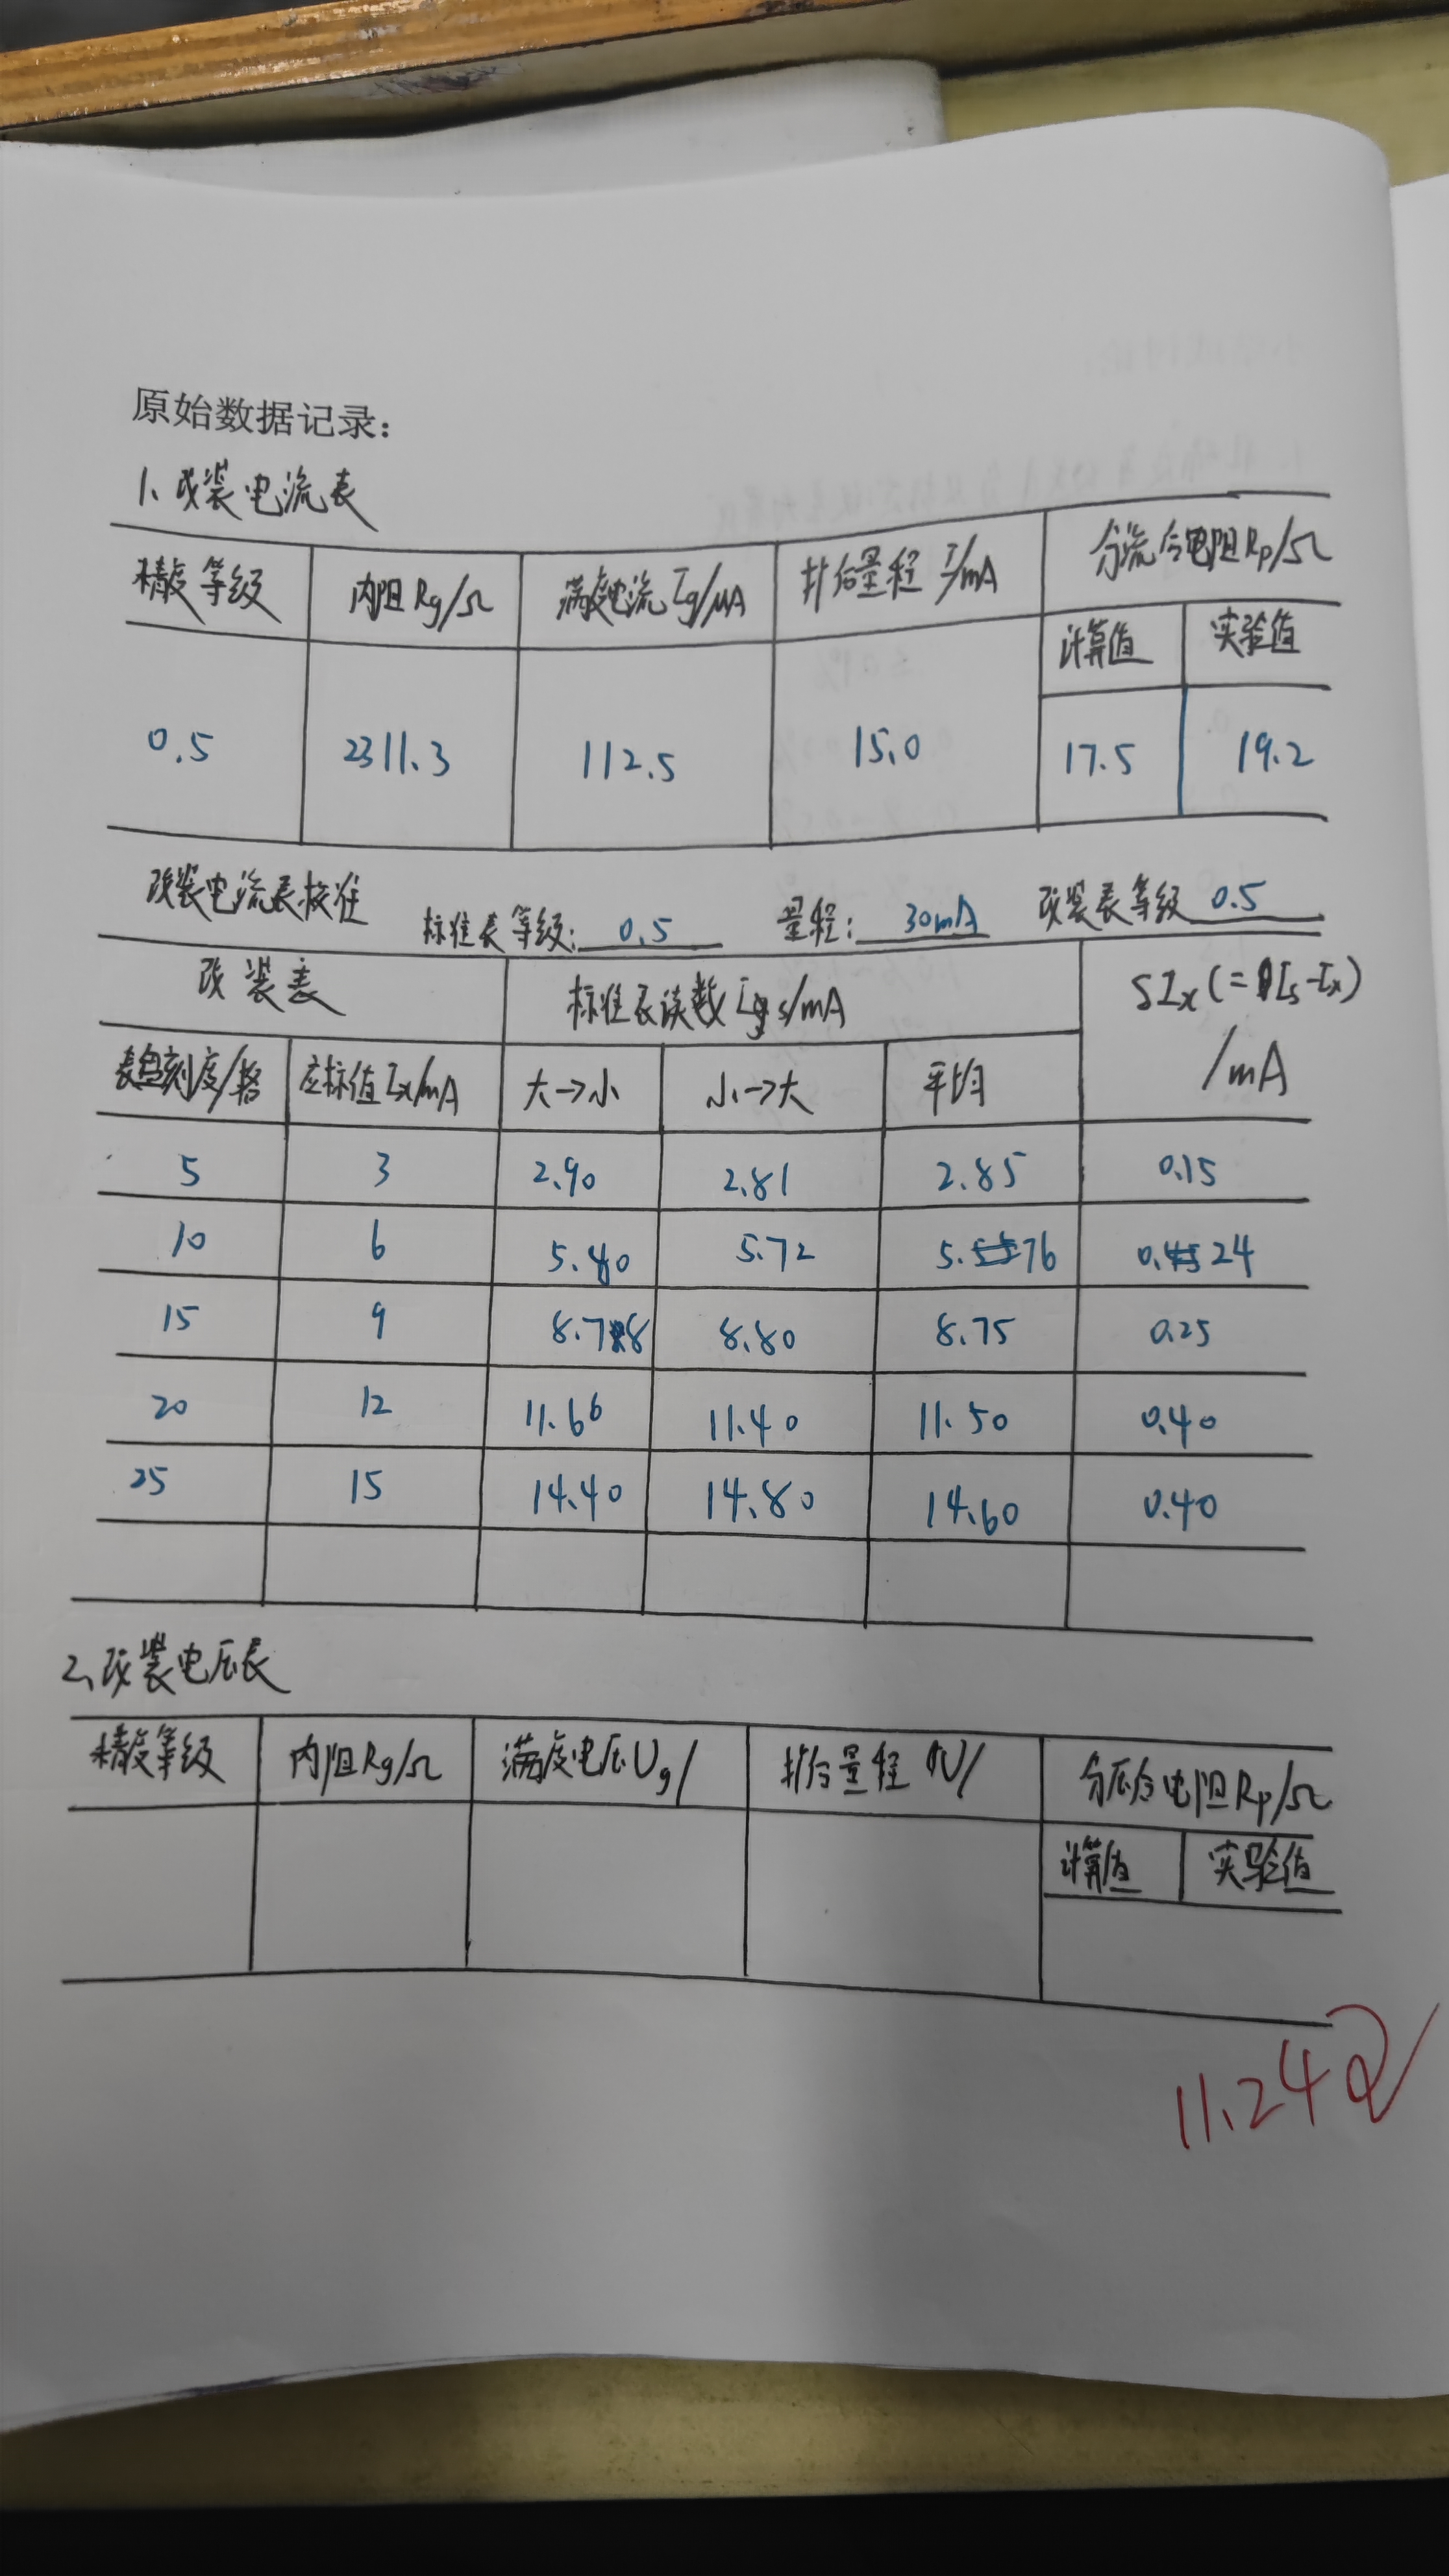 原始数据记录:
1、改装电流表
精度等级 内阻Rg/Ω 满度电流Ig/μA 扩后量程I/mA 分流电阻Rp/Ω
计算值 实验值
0.5 2311.3 112.5 15.0 17.5 19.2
改装电流表校准 标准表等级: 0.5 量程: 30mA 改装表等级 0.5
改装表 标准表读数Is/mA δIx(=Is-Ix)
/mA
表盘刻度/格 应标值Ix/mA 大→小 小→大 平均
5 3 2.90 2.81 2.85 0.15
10 6 5.80 5.72 5.76 0.24
15 9 8.78 8.80 8.75 0.25
20 12 11.66 11.40 11.50 0.40
25 15 14.40 14.80 14.60 0.40
2、改装电压表
精度等级 内阻Rg/Ω 满度电压Ug/ 扩后量程U/ 分压电阻Rp/Ω
计算值 实验值
11.24